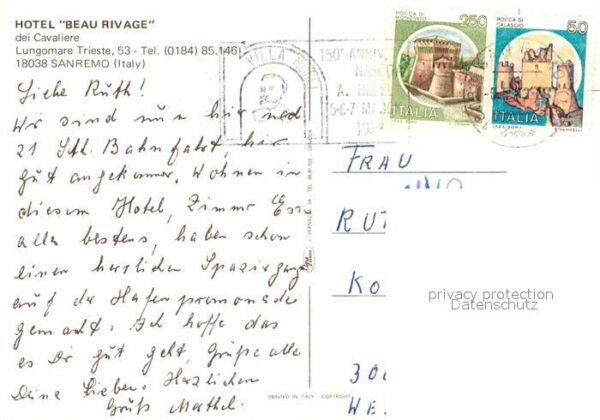 HOTEL "BEAU RIVAGE"
dei Cavaliere
Lungomare Trieste, 53 - Tel. (0184) 85.146
18038 SANREMO (Italy)
Liebe Ruth!
Wir sind nun hier nach
21 Std. Bahnfahrt, hier
gut angekommen. Wohnen in
diesem Hotel, Zimmer Essen
alles bestens, haben schon
einen herrlichen Spaziergang
auf der Hafenpromenade
gemacht. Ich hoffe das
es Dir gut geht, Grüße alle
Deine Lieben. Herzlichen
Gruß
PRINTED IN ITALY - COPYRIGHT
VILLA NOBEL
150° ANNIV.
A. NOBEL
5-6-7
ROCCA DI MONDAVIO
250
ITALIA
ROCCA DI CALASCIO
50
ITALIA
FRAU
RUT
KO
300
WE
privacy protection
Datenschutz